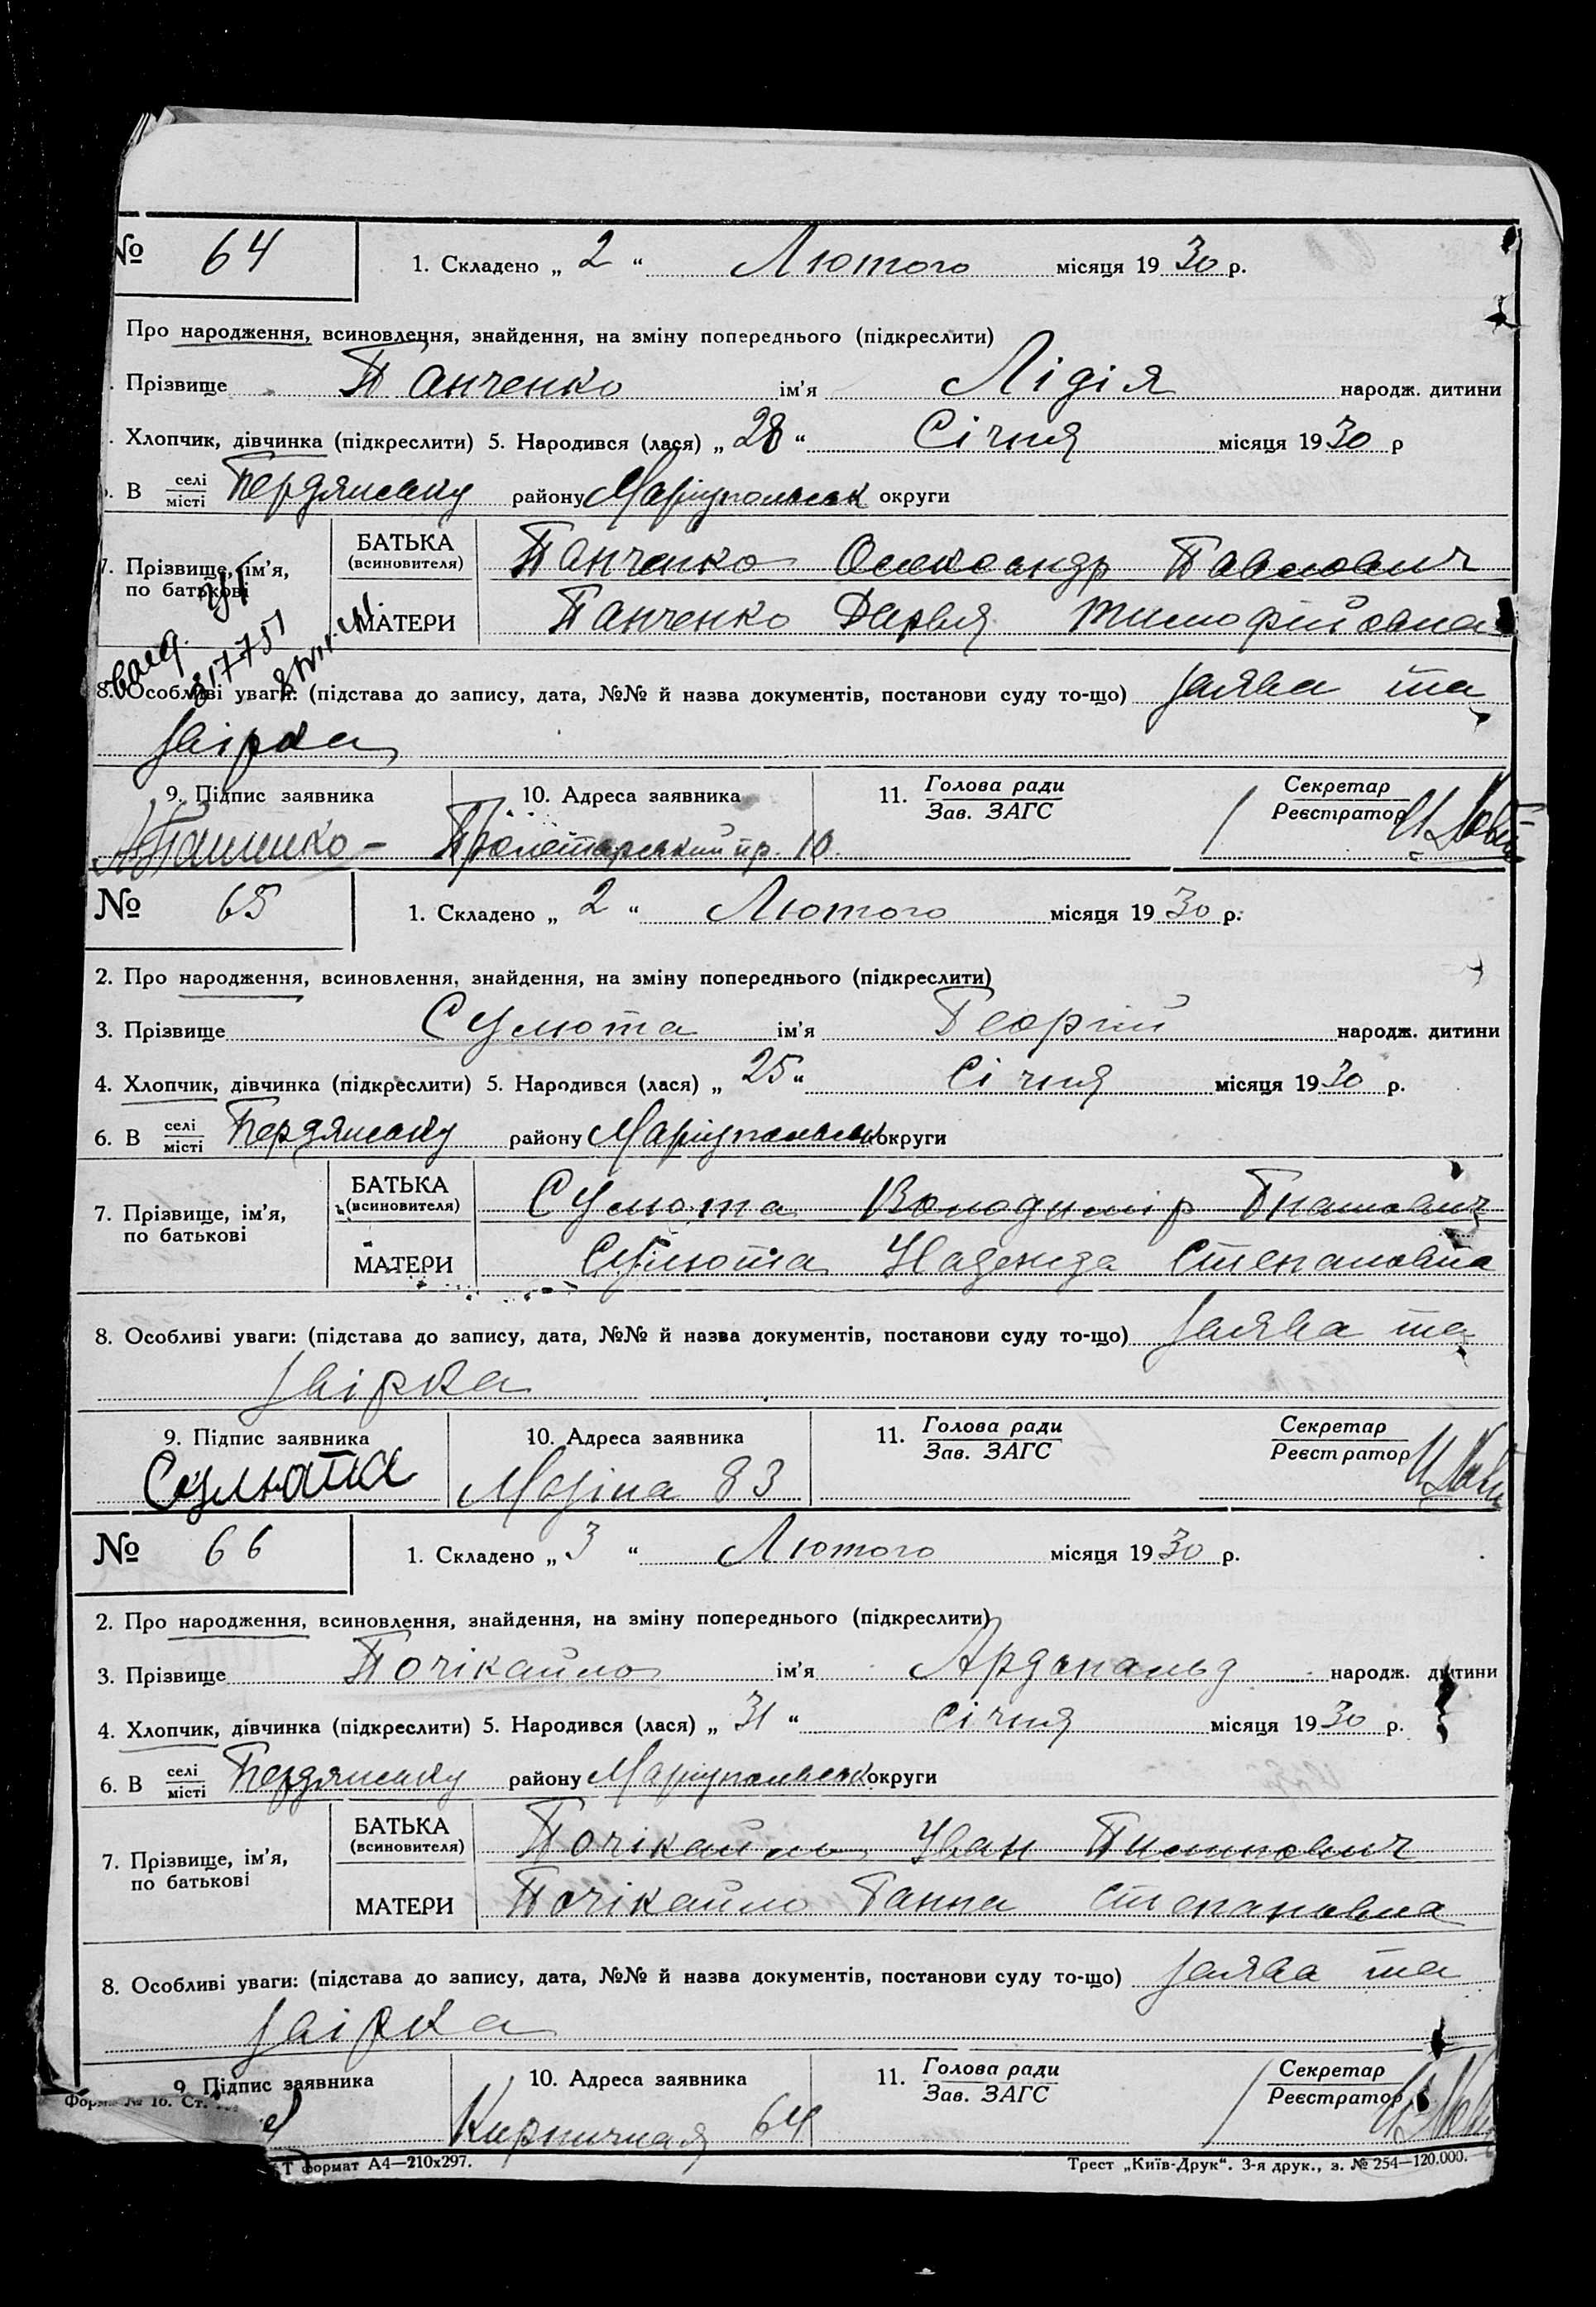 № 64 1. Складено „ 2 “ Лютого місяця 19 30 р.
Про народження, всиновлення, знайдення, на зміну попереднього (підкреслити)
. Прізвище Панченко ім’я Лідія народж. дитини
. Хлопчик, дівчинка (підкреслити) 5. Народився (лася) „ 28 “ Січня місяця 19 30 р
. В селі місті Бердянську району Маріупольськ округи
7. Прізвище, ім’я, по батькові БАТЬКА (всиновителя) Панченко Олександр Павлович
МАТЕРИ Панченко Дарья Тимофійовна
8. Особливі уваги: (підстава до запису, дата, №№ й назва документів, постанови суду то-що) заява та
звірка
9. Підпис заявника 10. Адреса заявника 11. Голова ради Зав. ЗАГС Секретар Реєстратор
Пролетарський пр. 10.
№ 65 1. Складено „ 2 “ Лютого місяця 19 30 р.
2. Про народження, всиновлення, знайдення, на зміну попереднього (підкреслити)
3. Прізвище Сулюта ім’я Георгій народж. дитини
4. Хлопчик, дівчинка (підкреслити) 5. Народився (лася) „ 25 “ Січня місяця 19 30 р.
6. В селі місті Бердянську району Маріупольськ округи
7. Прізвище, ім’я, по батькові БАТЬКА (всиновителя) Сулюта Володимір Гнатович
МАТЕРИ Сулюта Надежда Степановна
8. Особливі уваги: (підстава до запису, дата, №№ й назва документів, постанови суду то-що) заява та
звірка
9. Підпис заявника 10. Адреса заявника 11. Голова ради Зав. ЗАГС Секретар Реєстратор
Сулюта Мазіна 83
№ 66 1. Складено „ 3 “ Лютого місяця 19 30 р.
2. Про народження, всиновлення, знайдення, на зміну попереднього (підкреслити)
3. Прізвище Почікайло ім’я Ардональд народж. дитини
4. Хлопчик, дівчинка (підкреслити) 5. Народився (лася) „ 31 “ січня місяця 19 30 р.
6. В селі місті Бердянську району Маріупольськ округи
7. Прізвище, ім’я, по батькові БАТЬКА (всиновителя) Почікайло Іван Пилипович
МАТЕРИ Почікайло Ганна Степановна
8. Особливі уваги: (підстава до запису, дата, №№ й назва документів, постанови суду то-що) заява та
звірка
9. Підпис заявника 10. Адреса заявника 11. Голова ради Зав. ЗАГС Секретар Реєстратор
Форма № 16. Ст.
Кирпичная 64
Т формат А4—210х297. Трест „Київ-Друк“. 3-я друк., з. № 254—120.000.